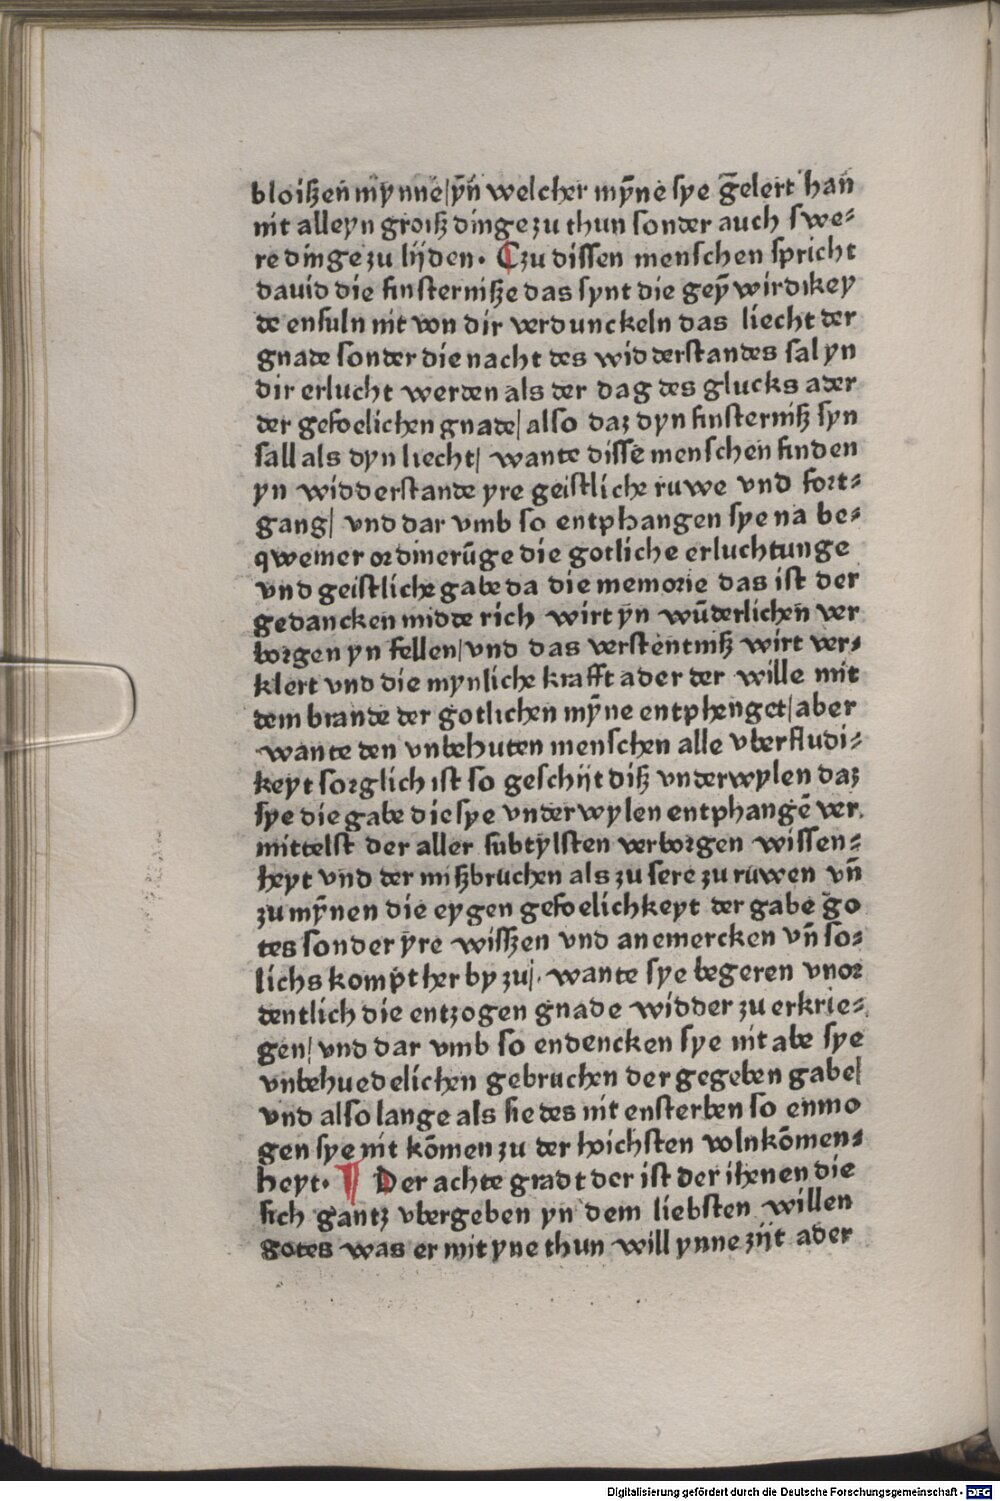 bloiſzen mynne|ȳn̄ welcher mȳne ſye g̃elert han
nit alleyn groiſz dinge zu thun ſonder auch ſwe⸗
re dinge zu lijden. Czu diſſen menſchen ſpricht
dauid die finſterniſze das ſynt die geȳwirdikey
de enſuln nit von dir verdunckeln das liecht der
gnade ſonder die nacht des widderſtandes ſal yn
dir erlucht werden als der dag des glucks ader
der gefoelichen gnade| alſo daz dyn finſterniſz ſyn
ſall als dyn liecht| wante diſſe menſchen finden
yn widderſtande yre geiſtliche ruwe vnd fort⸗
gang| vnd dar vmb ſo entphangen ſye na be⸗
qwemer ordinerūge die gotliche erluchtunge
vnd geiſtliche gabe da die memorie das iſt der
gedancken midde rich wirt yn wūderlichen ver
borgen yn fellen|vnd das verſtentniſz wirt ver⸗
klert vnd die mynliche krafft ader der wille mit
dem brande der gotlichen mȳne entphenget|aber
wante den vnbehuten menſchen alle vberfludi⸗
keyt ſorglich iſt ſo geſchijt diſz vnderwylen daz
ſye die gabe die ſye vnderwylen entphangē ver
mittelſt der aller ſubtylſten verborgen wiſſen⸗
heyt vnd der miſzbruchen als zu ſere zu ruwen vn̄
zu mȳnen die eygen gefoelichkeyt der gabe go
tes ſonder yre wiſſzen vnd anemercken vn̄ ſo⸗
lichs kompt her by zu|. wante ſye begeren vnor
dentlich die entzogen gnade widder zu erkrie⸗
gen| vnd dar vmb ſo endencken ſye nit abe ſye
vnbehuedelichen gebruchen der gegeben gabe|
vnd alſo lange als ſie des nit enſterben ſo enmo
gen ſye nit kōmen zu der hoichſten volnkōmen⸗
heyt. ¶ Der achte gradt der iſt der ihenen die
ſich gantz vbergeben yn dem liebſten willen
gotes was er mit yne thun will ynne zijt ader
Digitalisierung gefördert durch die Deutsche Forschungsgemeinschaft - DFG